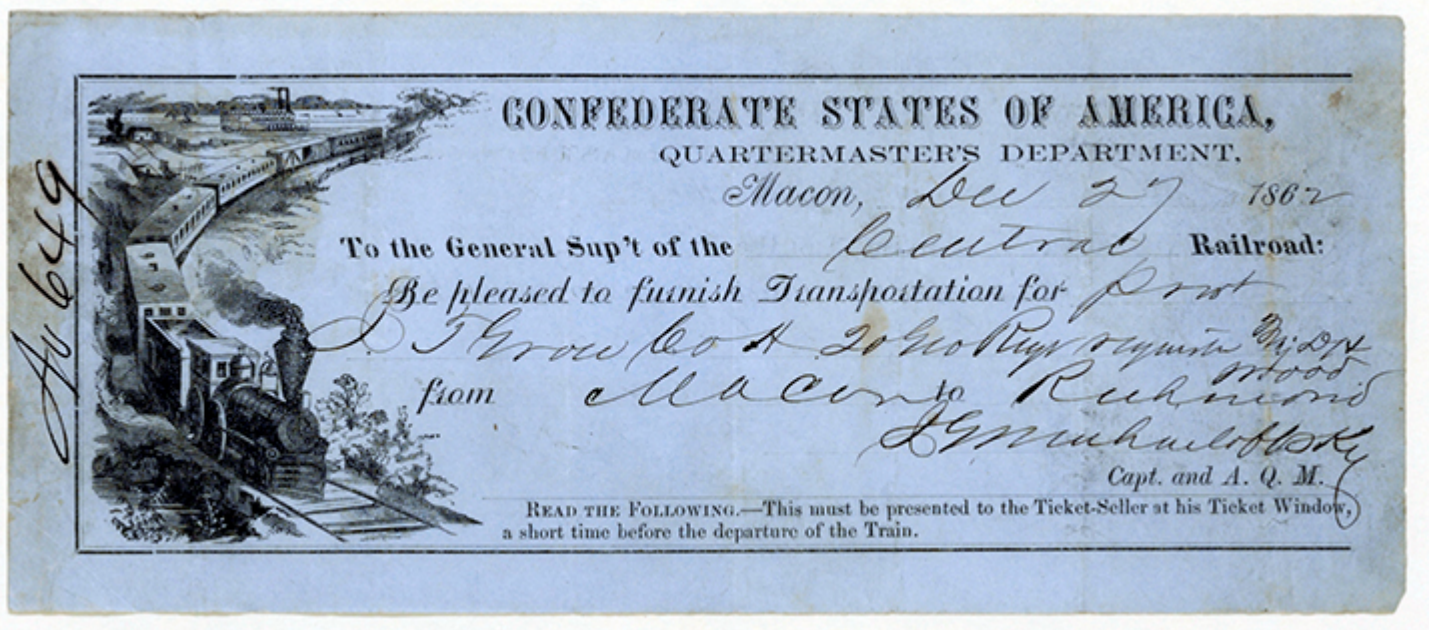 No 649
CONFEDERATE STATES OF AMERICA,
QUARTERMASTER'S DEPARTMENT,
Macon, Dec 27 1862
To the General Sup't of the Central Railroad:
Be pleased to furnish Transportation for
Co A 20 Geo
from Macon to Richmond
Capt. and A. Q. M.
READ THE FOLLOWING.—This must be presented to the Ticket-Seller at his Ticket Window,
a short time before the departure of the Train.